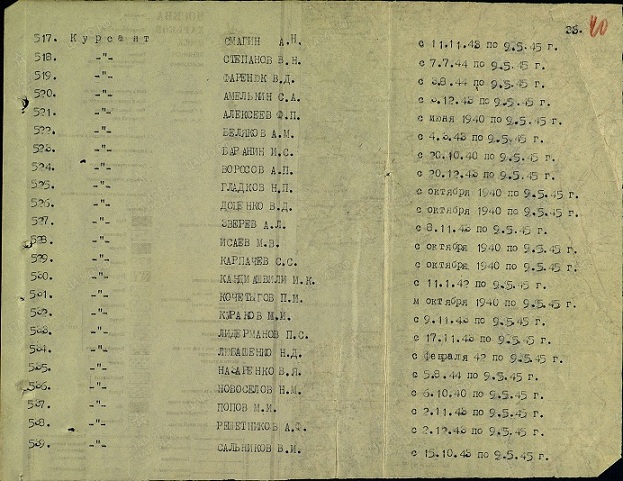 26. 40
517. Курсант СМАГИН А.Н. с 11.11.43 по 9.5.45 г.
518. -"- СТЕПАНОВ В.Н. с 7.7.44 по 9.5.45 г.
519. -"- ФАРЕНЮК В.Д. с 3.8.44 по 9.5.45 г.
520. -"- АМЕЛЬКИН С.А. с 3.12.43 по 9.5.45 г.
521. -"- АЛЕКСЕЕВ Ф.П. с июня 1940 по 9.5.45 г.
522. -"- БЕЛЯКОВ А.М. с 4.3.43 по 9.5.45 г.
523. -"- БАРАНИН И.С. с 20.10.40 по 9.5.45 г.
524. -"- ВОРОСОВ А.П. с 20.12.43 по 9.5.45 г.
525. -"- ГЛАДКОВ Н.П. с октября 1940 по 9.5.45 г.
526. -"- ДОЦЕНКО В.Д. с октября 1940 по 9.5.45 г.
527. -"- ЗВЕРЕВ А.Л. с 8.11.43 по 9.5.45 г.
528. -"- ИСАЕВ М.В. с октября 1940 по 9.5.45 г.
529. -"- КАРПАЧЕВ С.С. с октября 1940 по 9.5.45 г.
530. -"- И.К. с 11.1.42 по 9.5.45 г.
531. -"- КОЧЕТЫГОВ П.И. м октября 1940 по 9.5.45 г.
532. -"- КУРАКОВ М.И. с 9.11.43 по 9.5.45 г.
533. -"- ЛИДЕРМАНОВ П.С. с 17.11.43 по 9.5.45 г.
534. -"- ЛЮБАШЕНКО Н.Д. с февраля 42 по 9.5.45 г.
535. -"- НАЗАРЕНКО В.Л. с 5.8.44 по 9.5.45 г.
536. -"- НОВОСЕЛОВ Н.М. с 6.10.40 по 9.5.45 г.
537. -"- ПОПОВ М.И. с 2.11.43 по 9.5.45 г.
538. -"- РЕШЕТНИКОВ А.Ф. с 2.12.43 по 9.5.45 г.
539. -"- САЛЬНИКОВ В.И. с 15.10.43 по 9.5.45 г.